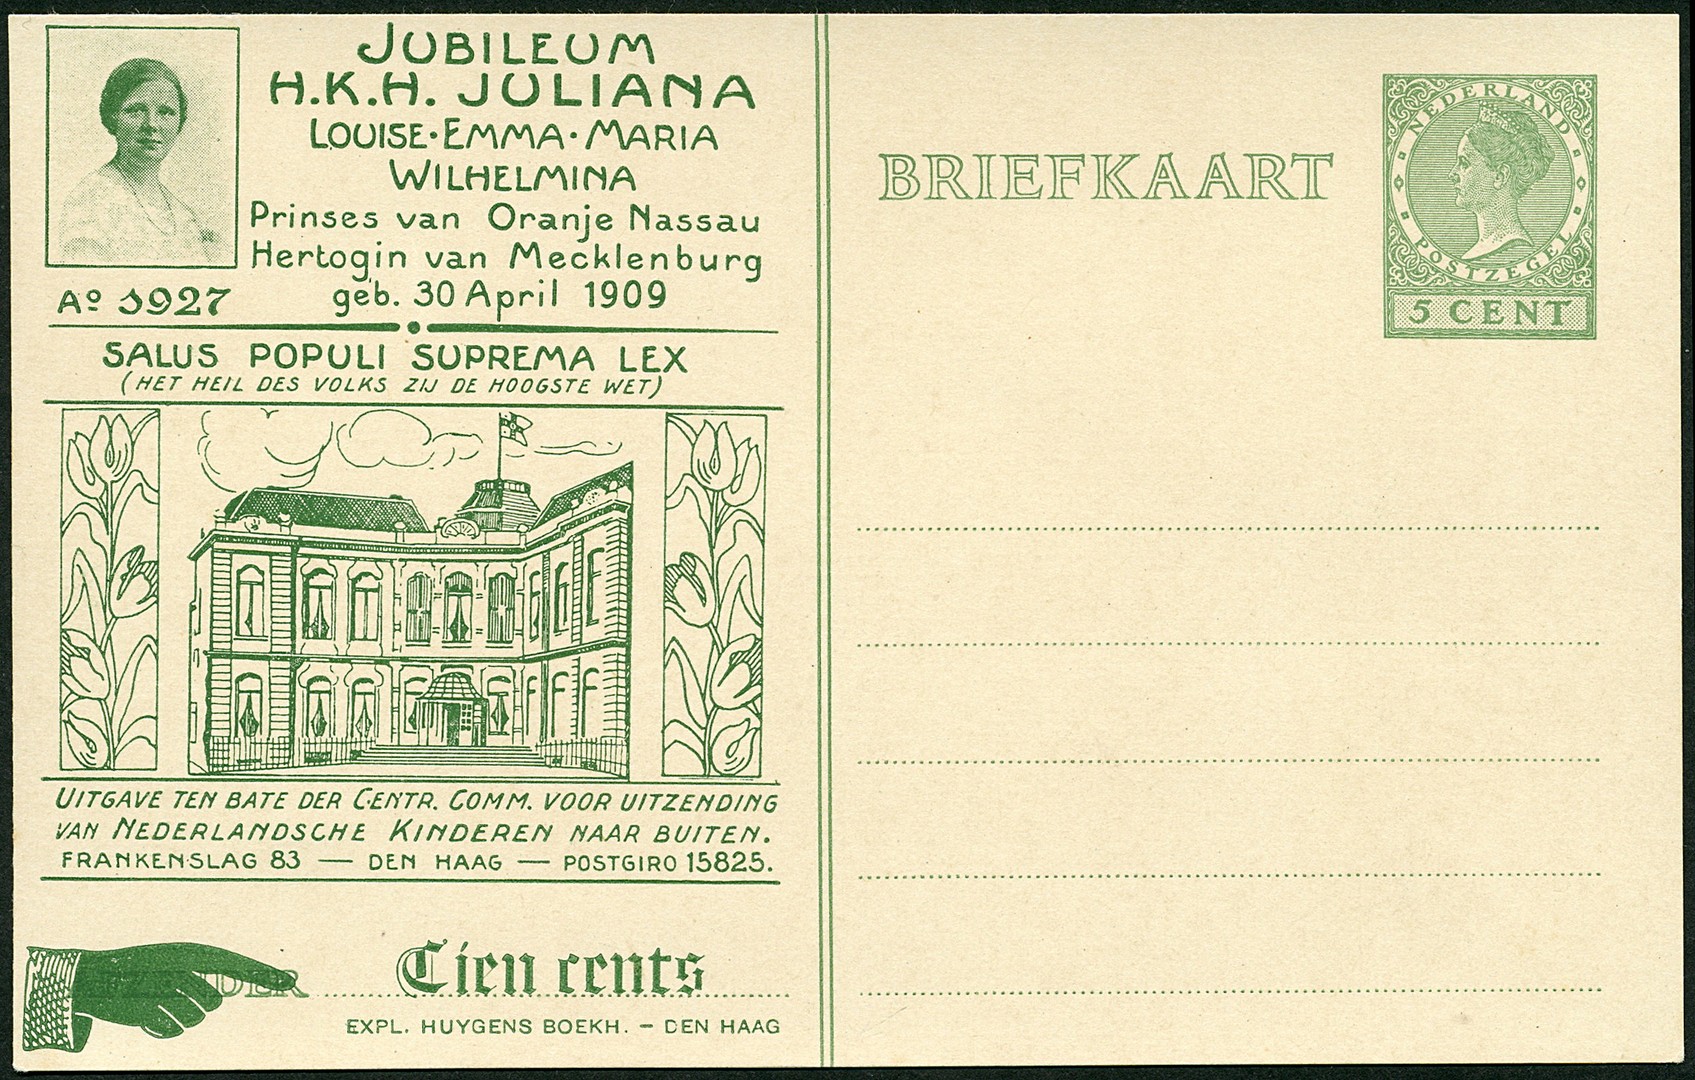 JUBILEUM
H.K.H. JULIANA
LOUISE·EMMA·MARIA
WILHELMINA
Prinses van Oranje Nassau
Hertogin van Mecklenburg
geb. 30 April 1909
Aº 1927
SALUS POPULI SUPREMA LEX
(HET HEIL DES VOLKS ZIJ DE HOOGSTE WET)
UITGAVE TEN BATE DER CENTR. COMM. VOOR UITZENDING
VAN NEDERLANDSCHE KINDEREN NAAR BUITEN.
FRANKENSLAG 83 — DEN HAAG — POSTGIRO 15825.
AFZENDER
Tien cents
EXPL. HUYGENS BOEKH. – DEN HAAG
BRIEFKAART
NEDERLAND
POSTZEGEL
5 CENT